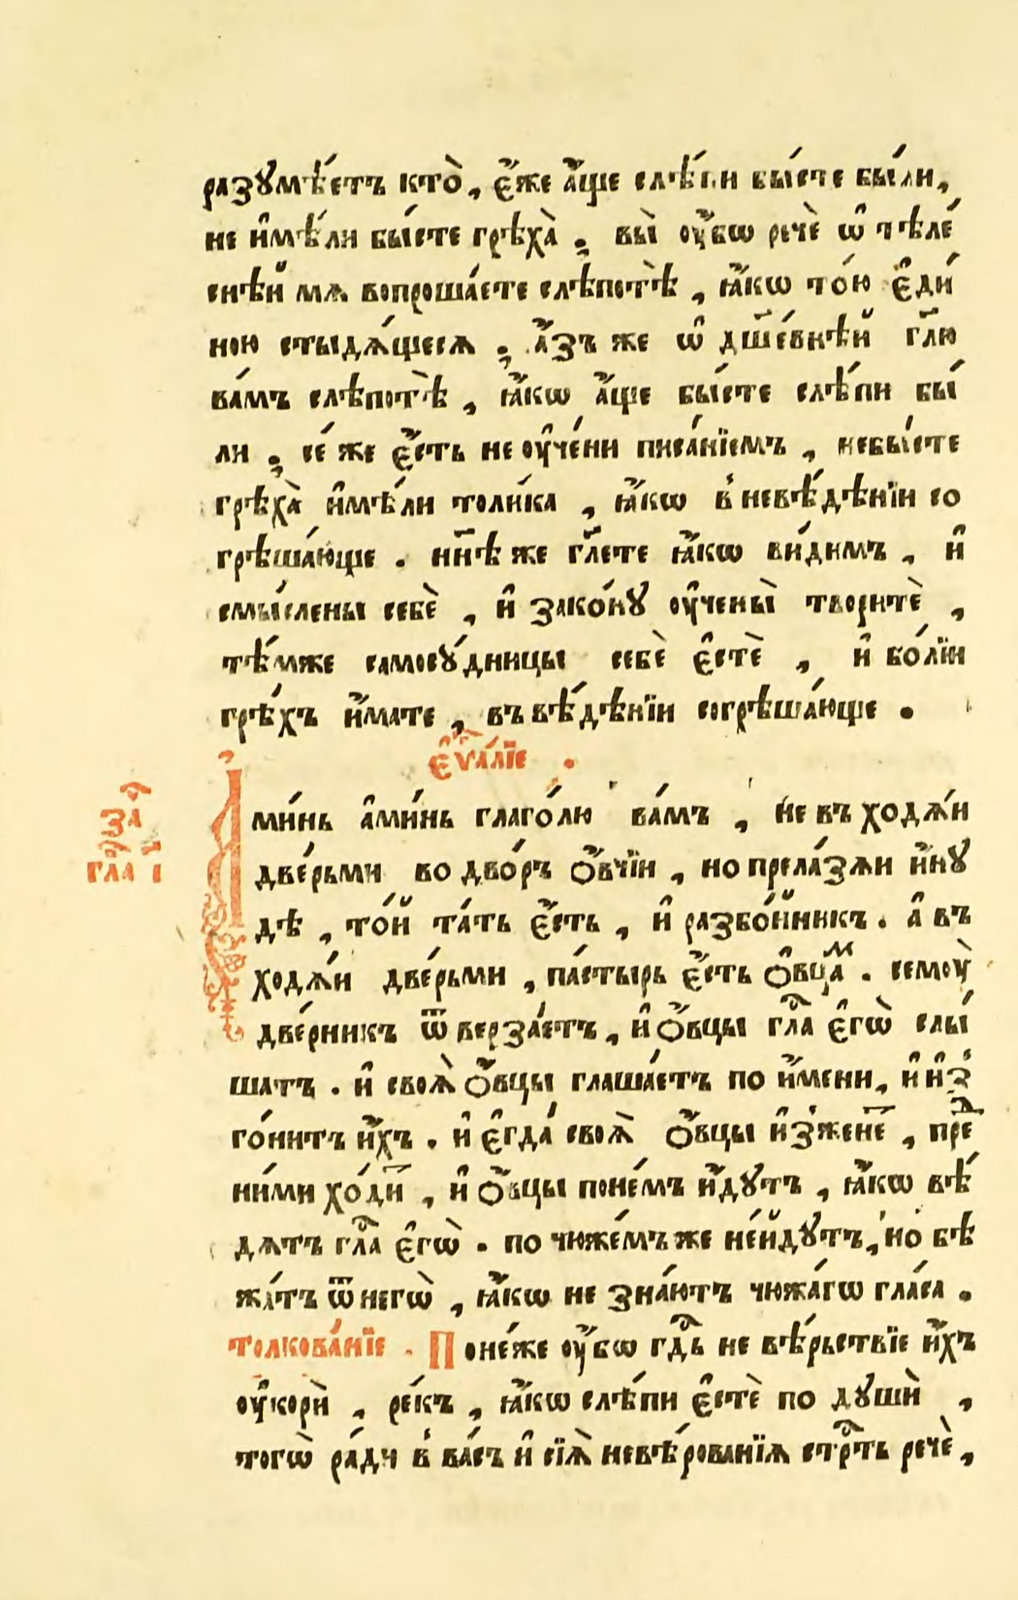 разꙋмѣ́етъ кто̀, є҆́же а҆́ще слѣ́пи бы́сте бы́ли,
не и҆мѣ́ли бы́сте грѣха̀ ; вы̀ ᲂу҆́бѡ речѐ ѡ҆ тѣле́
снѣй мѧ вопроша́ете слѣпотѣ̀, ꙗ҆́кѡ то́ю є҆ди́
ною стыдѧ́щесѧ ; а҆́зъ же ѡ҆ дш҃е́внѣй гл҃ю
ва́мъ слѣпотѣ̀, ꙗ҆́кѡ а҆́ще бы́сте слѣ́пи бы́
ли ; се́ же є҆́сть не ᲂу҆че́ни писа́нїемъ, небы́сте
грѣха̀ и҆мѣ́ли толи́ка, ꙗ҆́кѡ в невѣ́дѣнїи со
грѣша́юще . нн҃ѣ же гл҃ете ꙗ҆́кѡ ви́димъ, и҆
смы́слены себѐ, и҆ зако́нꙋ ᲂу҆чены̀ творитѐ,
тѣ́мже самосꙋ́дницы себѐ є҆стѐ, и҆ бо́лїи
грѣ́хъ и҆́мате, въ вѣ́дѣнїи согрѣша́юще .
є҆ѵⷢ҇а́лїе .
за
гла і
А҆ми́нь а҆ми́нь глаго́лю ва́мъ, не въ ходѧ́и
две́рьми во дво́ръ ѻ҆́вчїи, но прела́зѧи и҆́нꙋ
дѣ, то́й та́ть є҆́сть, и҆ разбо́йникъ. а҆ въ
ходѧ́и две́рьми, па́стырь є҆́сть ѻ҆вца́ⷨ. семоу̀
две́рникъ ѿ верза́етъ, и҆ ѻ҆́вцы гла́ⷭ҇ є҆гѡ̀ слы́
шатъ . и҆ своѧ̀ ѻ҆́вцы глаша́етъ по и҆́мени, и҆ и҆з
го́нитъ и҆́хъ . и҆ є҆гда́ своѧ̀ ѻ҆́вцы и҆зжене́ⷮ, преⷣ
ни́ми хо́диⷮ, и҆ ѻ҆́вцы поне́мъ и҆́дꙋтъ, ꙗ҆́кѡ вѣ́
дѧтъ гла́ⷭ҇ є҆гѡ̀ . по чюже́мъ же не́йдꙋтъ, но бѣ
жа́тъ ѿ негѡ̀, ꙗ҆́кѡ не зна́ютъ чюжа́гѡ гла́са .
толкова́нїе . Поне́же ᲂу҆́бѡ гд҇ь не вѣ́рьствїе и҆́хъ
ᲂу҆корѝ, ре́къ, ꙗ҆́кѡ слѣ́пи є҆стѐ по дꙋшѝ,
тогѡ̀ ра́ди в ва́съ и҆ сїѧ̀ невѣ́рованїѧ стрⷭ҇ть речѐ,